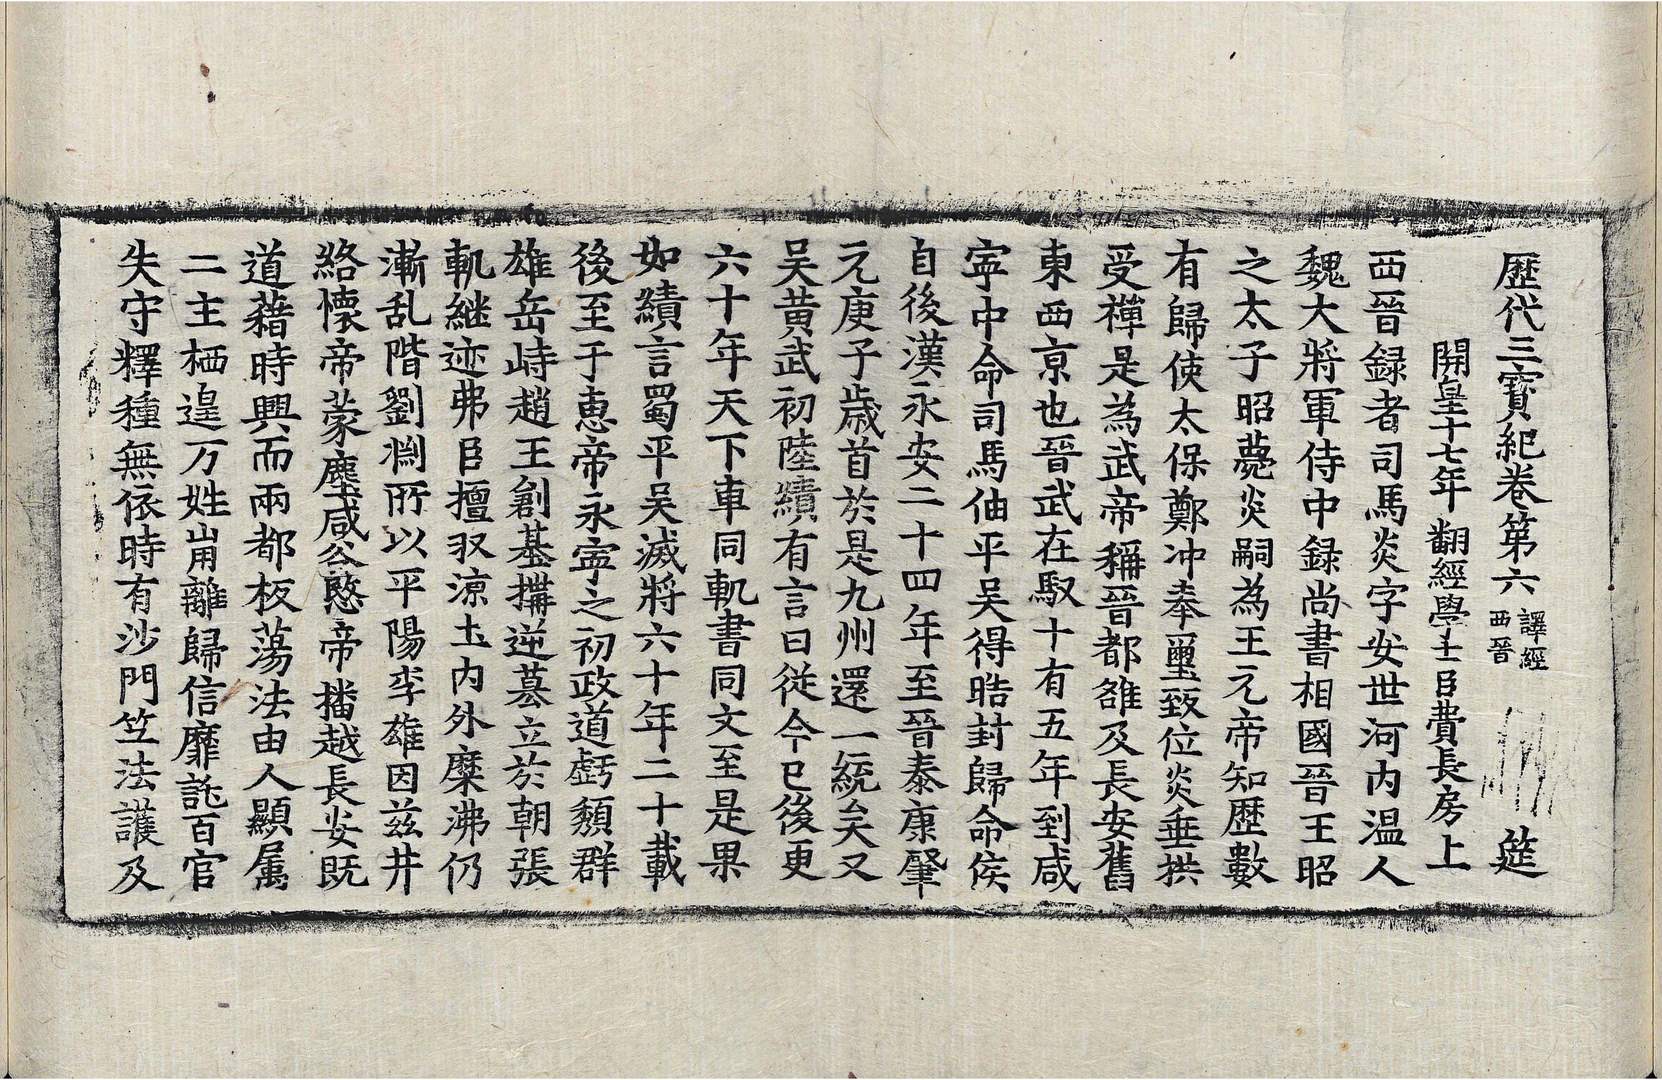 歷代三寶紀卷第六 譯經西晉 筵
開皇十七年翻經學士臣費長房上
西晉録者司馬炎字安世河内温人
魏大將軍侍中録尚書相國晉王昭
之太子昭薨炎嗣為王元帝知歷數
有歸使太保鄭冲奉璽致位炎垂拱
受禪是為武帝稱晉都雒及長安舊
東西京也晉武在馭十有五年到咸
寧中命司馬伷平吴得晧封歸命侯
自後漢永安二十四年至晉泰康肇
元庚子歲首於是九州還一統矣又
吴黄武初陸績有言曰從今已後更
六十年天下車同軌書同文至是果
如績言蜀平吴滅將六十年二十載
後至于惠帝永寧之初政道虧頽群
雄岳峙趙王創基搆逆墓立於朝張
軌継迹弗臣擅収涼圡内外糜沸仍
漸乱階劉淵所以平陽李雄因兹井
絡懷帝蒙塵咸谷愍帝播越長安既
道藉時興而兩都板蕩法由人顯属
二主栖遑万姓崩離歸信靡託百官
失守釋種無依時有沙門竺法護及